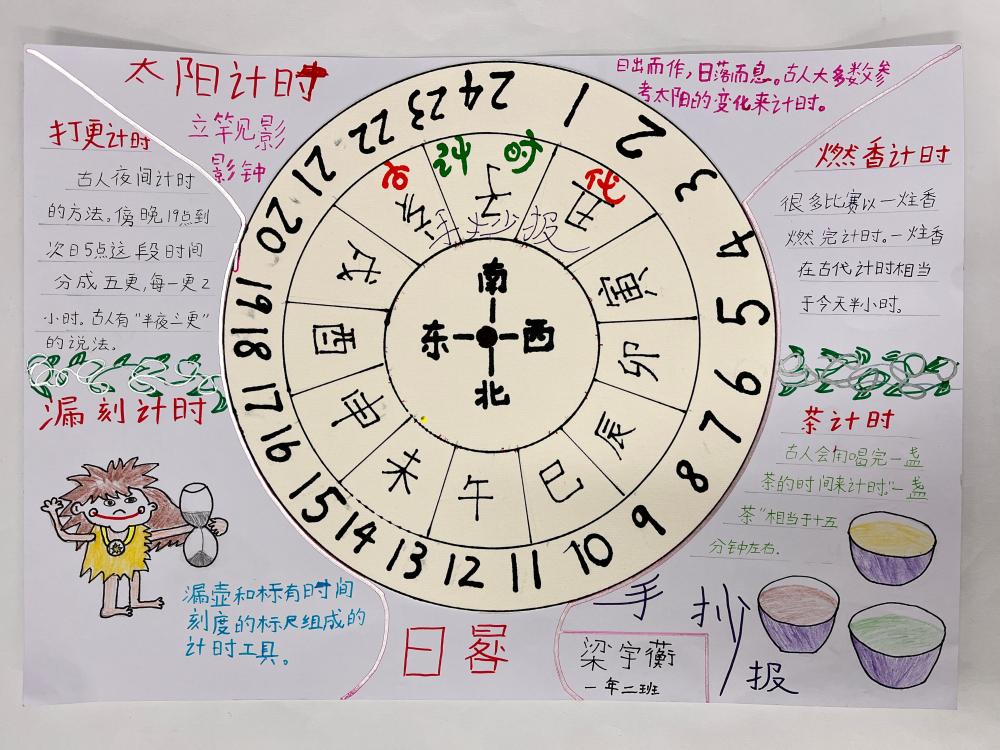 太阳计时
立竿见影
影钟
日出而作，日落而息。古人大多数参
考太阳的变化来计时。
打更计时
古人夜间计时
的方法。傍晚19点到
次日5点这段时间
分成五更，每一更2
小时。古人有“半夜三更”
的说法。
燃香计时
很多比赛以一炷香
燃完计时。一炷香
在古代计时相当
于今天半小时。
漏刻计时
漏壶和标有时间
刻度的标尺组成的
计时工具。
茶计时
古人会用唱完一盏
茶的时间来计时。“一盏
茶”相当于十五
分钟左右.
1 2 3 4 5 6 7 8 9 10 11 12 13 14 15 16 17 18 19 20 21 22 23 24
古代计时
手抄报
子 丑 寅 卯 辰 巳 午 未 申 酉 戌 亥
南
东 西
北
日晷
手抄报
梁宇蘅
一年二班